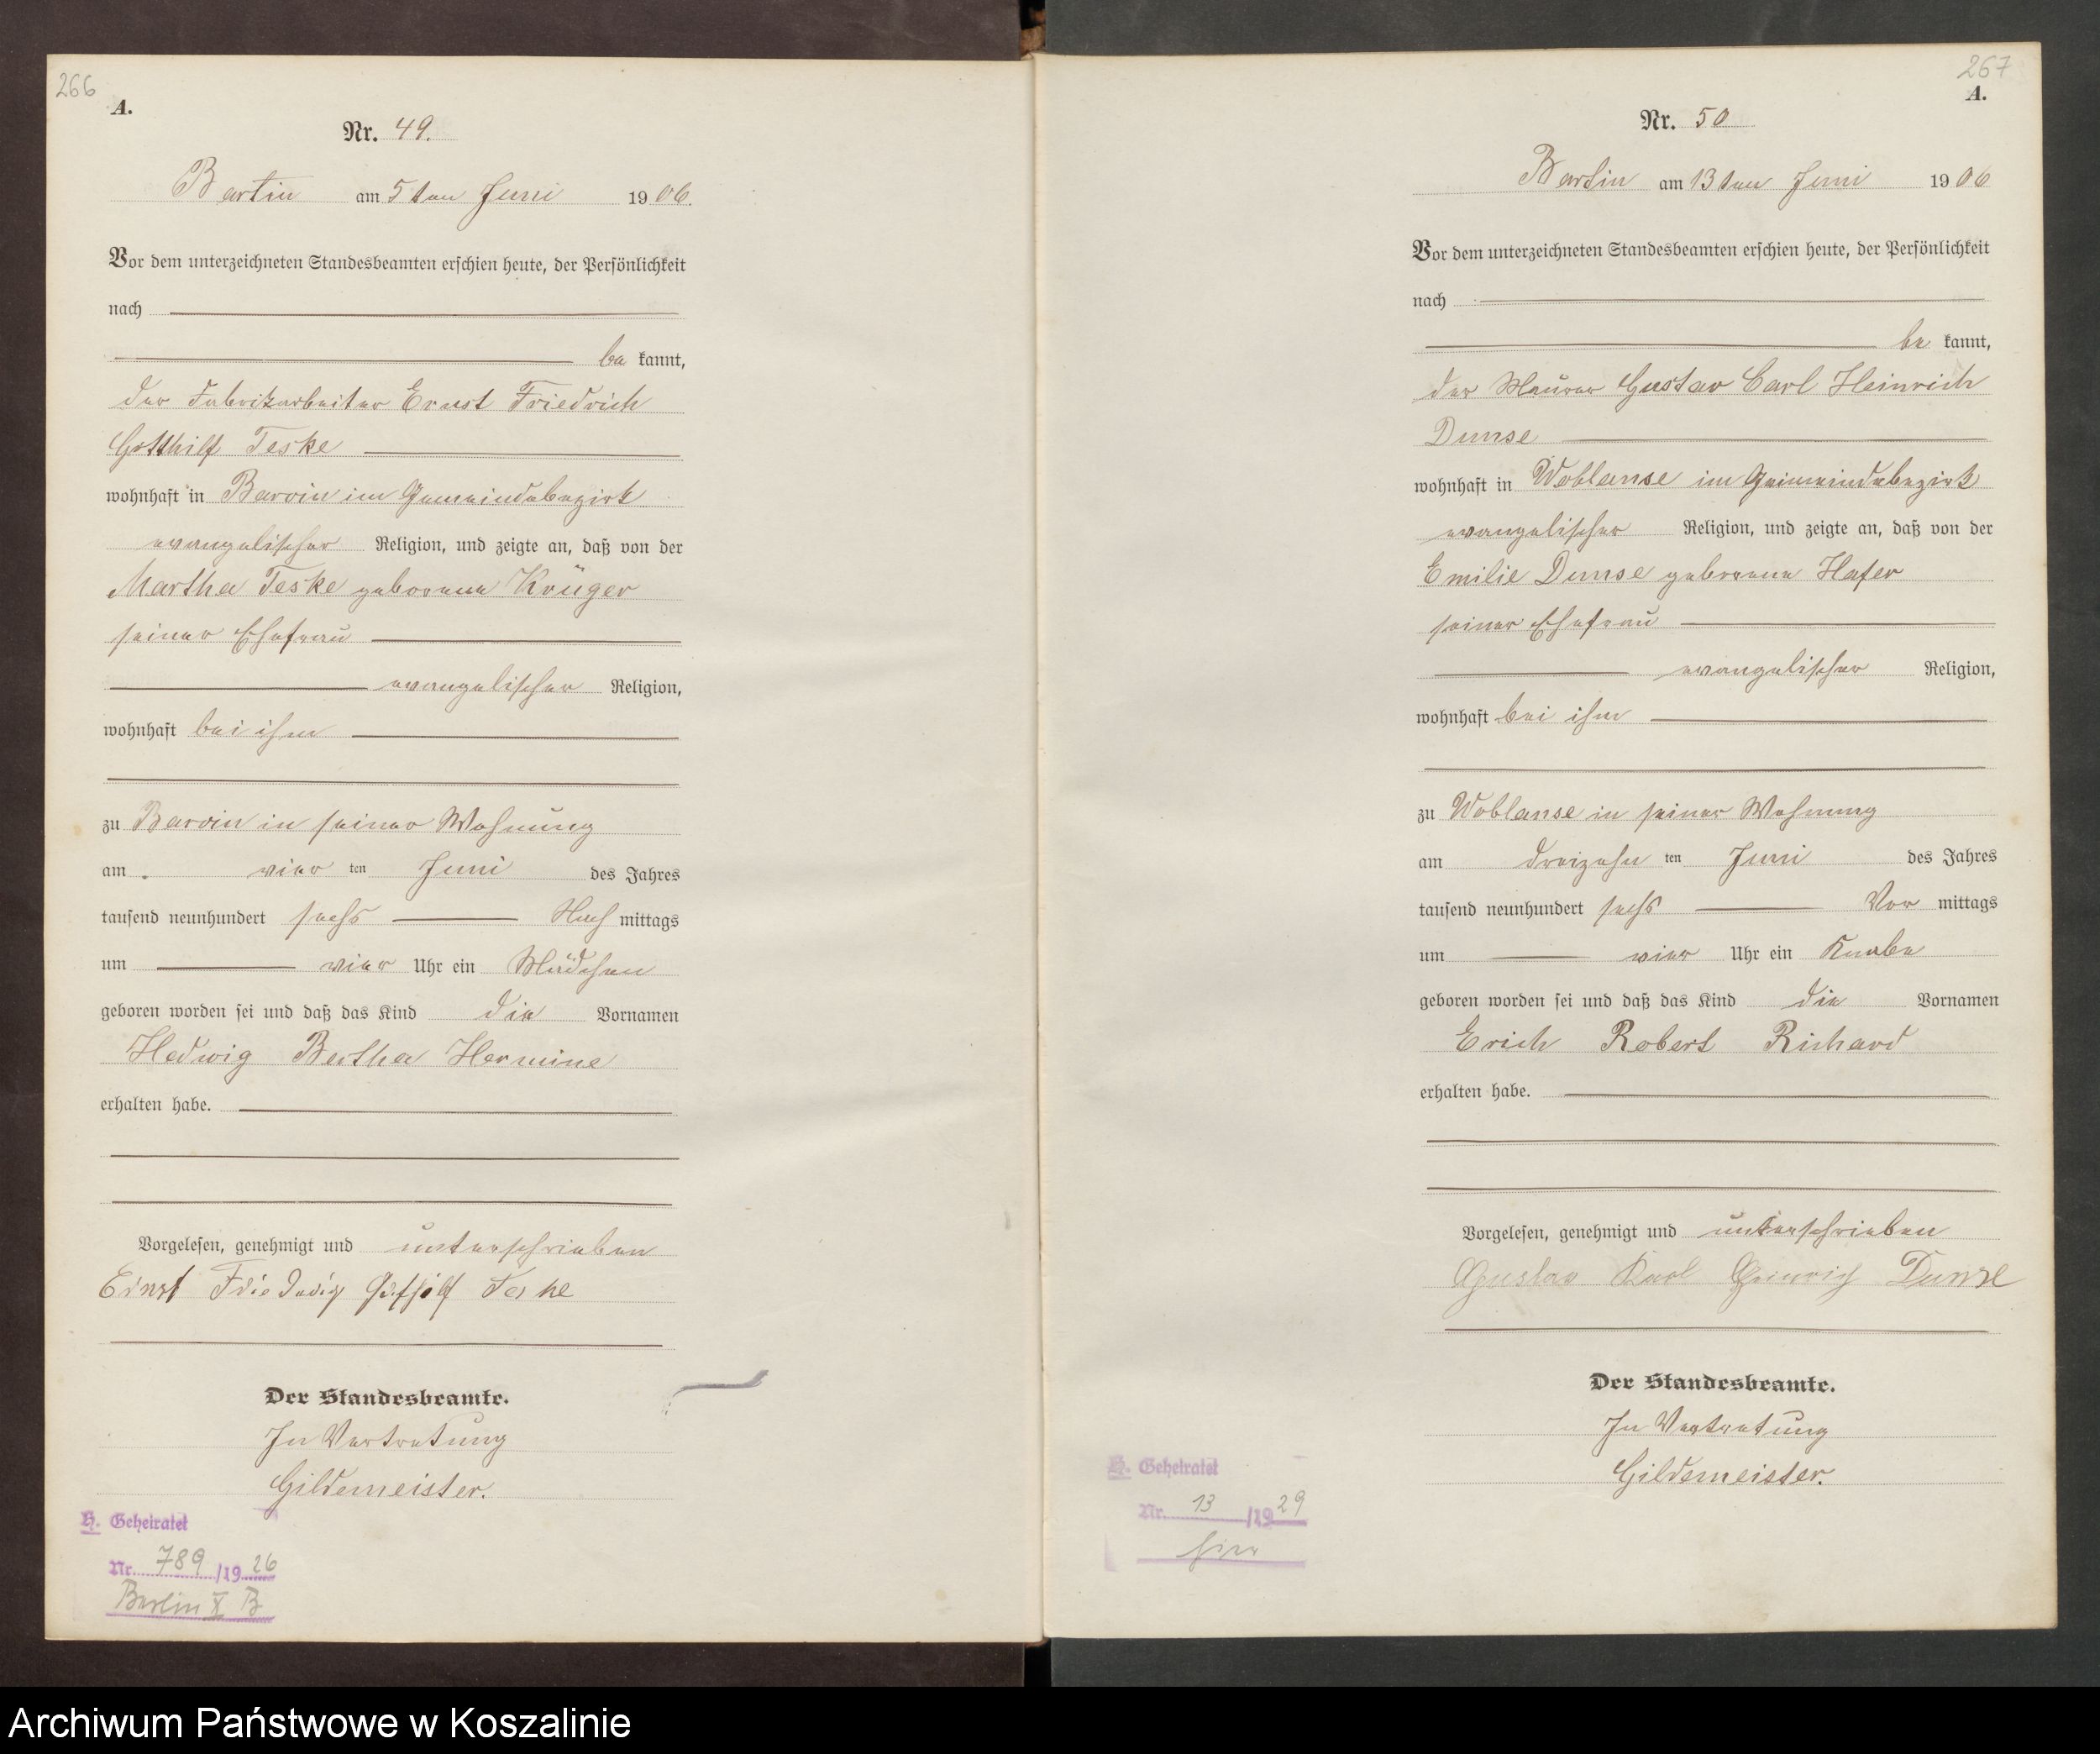 266
A.
Nr. 49.
Bartin am 5ten Juni 1906.
Vor dem unterzeichneten Standesbeamten erschien heute, der Persönlichkeit
nach
bekannt,
der Fabrikarbeiter Ernst Friedrich
Gotthilf Teske
wohnhaft in Barvin im Gemeindebezirk
evangelischer Religion, und zeigte an, daß von der
Martha Teske geborene Krüger
seiner Ehefrau
evangelischer Religion,
wohnhaft bei ihm
zu Barvin in seiner Wohnung
am vier ten Juni des Jahres
tausend neunhundert sechs Nachmittags
um vier Uhr ein Mädchen
geboren worden sei und daß das Kind die Vornamen
Hedwig Bertha Hermine
erhalten habe.
Vorgelesen, genehmigt und unterschrieben
Ernst Friedrich Gotthilf Teske
Der Standesbeamte.
In Vertretung
Gildemeister.
H. Geheiratet
Nr. 789 /1926
Berlin X B
267
A.
Nr. 50
Bartin am 13ten Juni 1906
Vor dem unterzeichneten Standesbeamten erschien heute, der Persönlichkeit
nach
bekannt,
der Maurer Gustav Carl Heinrich
Dunse
wohnhaft in Woblanse im Gemeindebezirk
evangelischer Religion, und zeigte an, daß von der
Emilie Dunse geborene Hafer
seiner Ehefrau
evangelischer Religion,
wohnhaft bei ihm
zu Woblanse in seiner Wohnung
am dreizehn ten Juni des Jahres
tausend neunhundert sechs Vormittags
um vier Uhr ein Knabe
geboren worden sei und daß das Kind die Vornamen
Erich Robert Richard
erhalten habe.
Vorgelesen, genehmigt und unterschrieben
Gustav Karl Heinrich Dunse
Der Standesbeamte.
In Vertretung
Gildemeister.
H. Geheiratet
Nr. 13 /1929
hier
Archiwum Państwowe w Koszalinie